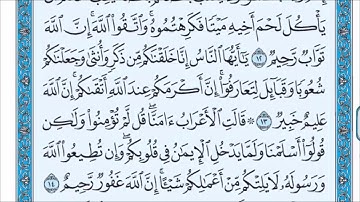 يَأْكُلَ لَحْمَ أَخِيهِ مَيْتًا فَكَرِهْتُمُوهُ وَاتَّقُوا۟ اللَّهَ إِنَّ اللَّهَ
تَوَّابٌ رَّحِيمٌ ١٢ يَٰٓأَيُّهَا النَّاسُ إِنَّا خَلَقْنَٰكُم مِّن ذَكَرٍ وَأُنثَىٰ وَجَعَلْنَٰكُمْ
شُعُوبًا وَقَبَآئِلَ لِتَعَارَفُوٓا۟ إِنَّ أَكْرَمَكُمْ عِندَ اللَّهِ أَتْقَىٰكُمْ إِنَّ اللَّهَ
عَلِيمٌ خَبِيرٌ ١٣ ۞ قَالَتِ الْأَعْرَابُ ءَامَنَّا قُل لَّمْ تُؤْمِنُوا۟ وَلَٰكِن
قُولُوٓا۟ أَسْلَمْنَا وَلَمَّا يَدْخُلِ الْإِيمَٰنُ فِي قُلُوبِكُمْ وَإِن تُطِيعُوا۟ اللَّهَ
وَرَسُولَهُۥ لَا يَلِتْكُم مِّنْ أَعْمَٰلِكُمْ شَيْـًٔا إِنَّ اللَّهَ غَفُورٌ رَّحِيمٌ ١٤